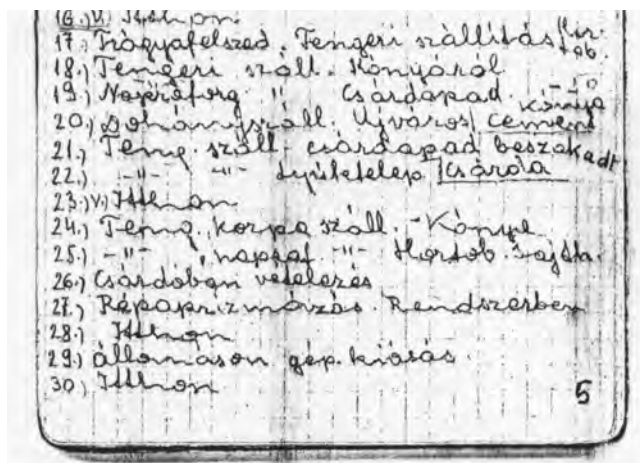 16.) V. Itthon.
17.) Trágyafelszed. Tengeri szállítás
18.) Tengeri száll. Kónyáról
19.) Napraforg " Csárdapad
20.) Dohányszáll. Újváros cement
21.) Teng. száll. csárdapad beszakadt
22.) -"- -"- Gyületelep Csárda
23.) V. Itthon
24.) Teng. korpa száll. - Kónya
25.) -"- , napraf -"- Hortob.
26.) Csárdában vételezés
27.) Répaprizmázás Rendszerben
28.) Itthon
29.) állomáson gép. kiásás
30.) Itthon
5